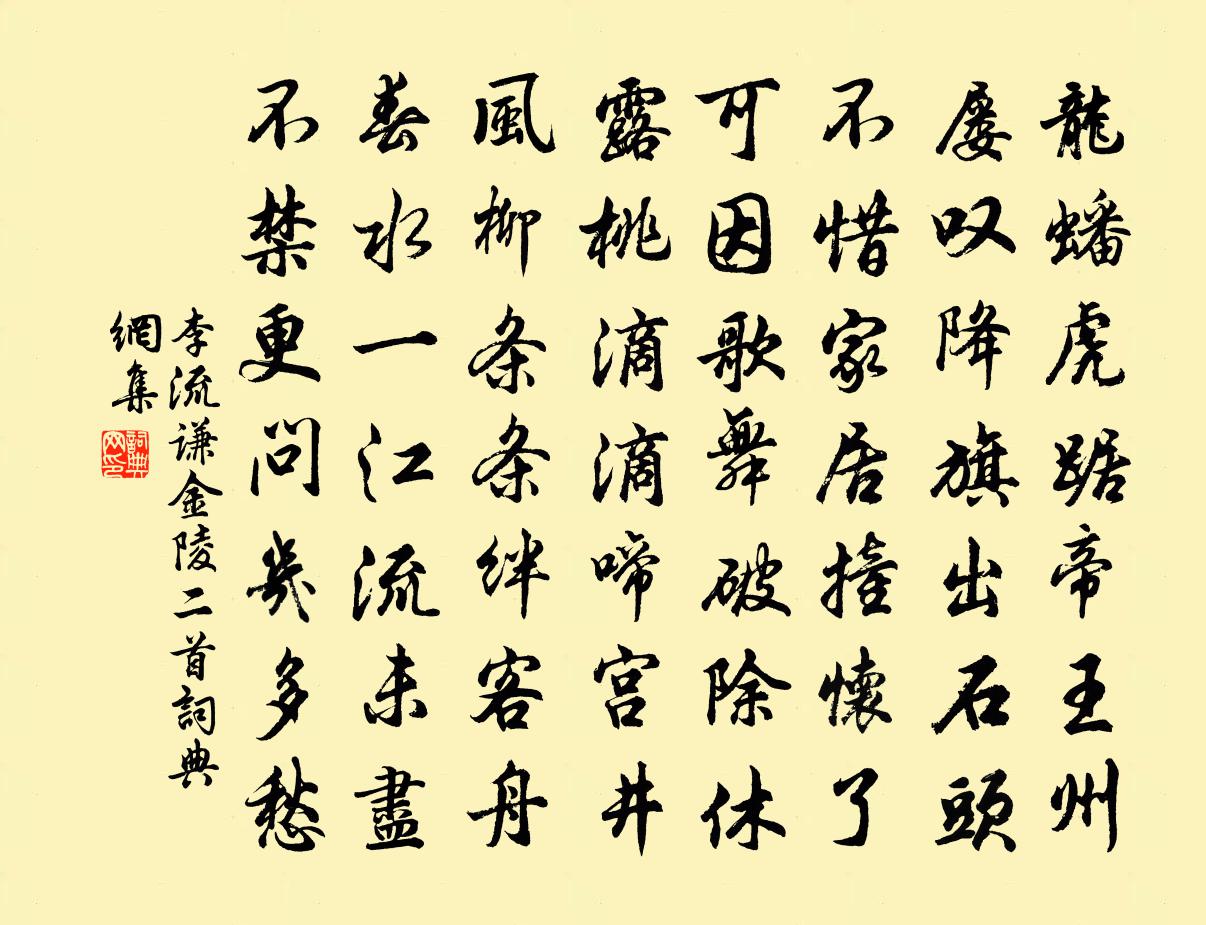 龍蟠虎踞帝王州
屢叹降旗出石頭
不惜家居撞懷了
可因歌舞破除休
露桃滴滴啼宫井
風柳条条絆客舟
春水一江流未盡
不禁更問幾多愁
李流谦金陵二首詞典
網集
詞典網印